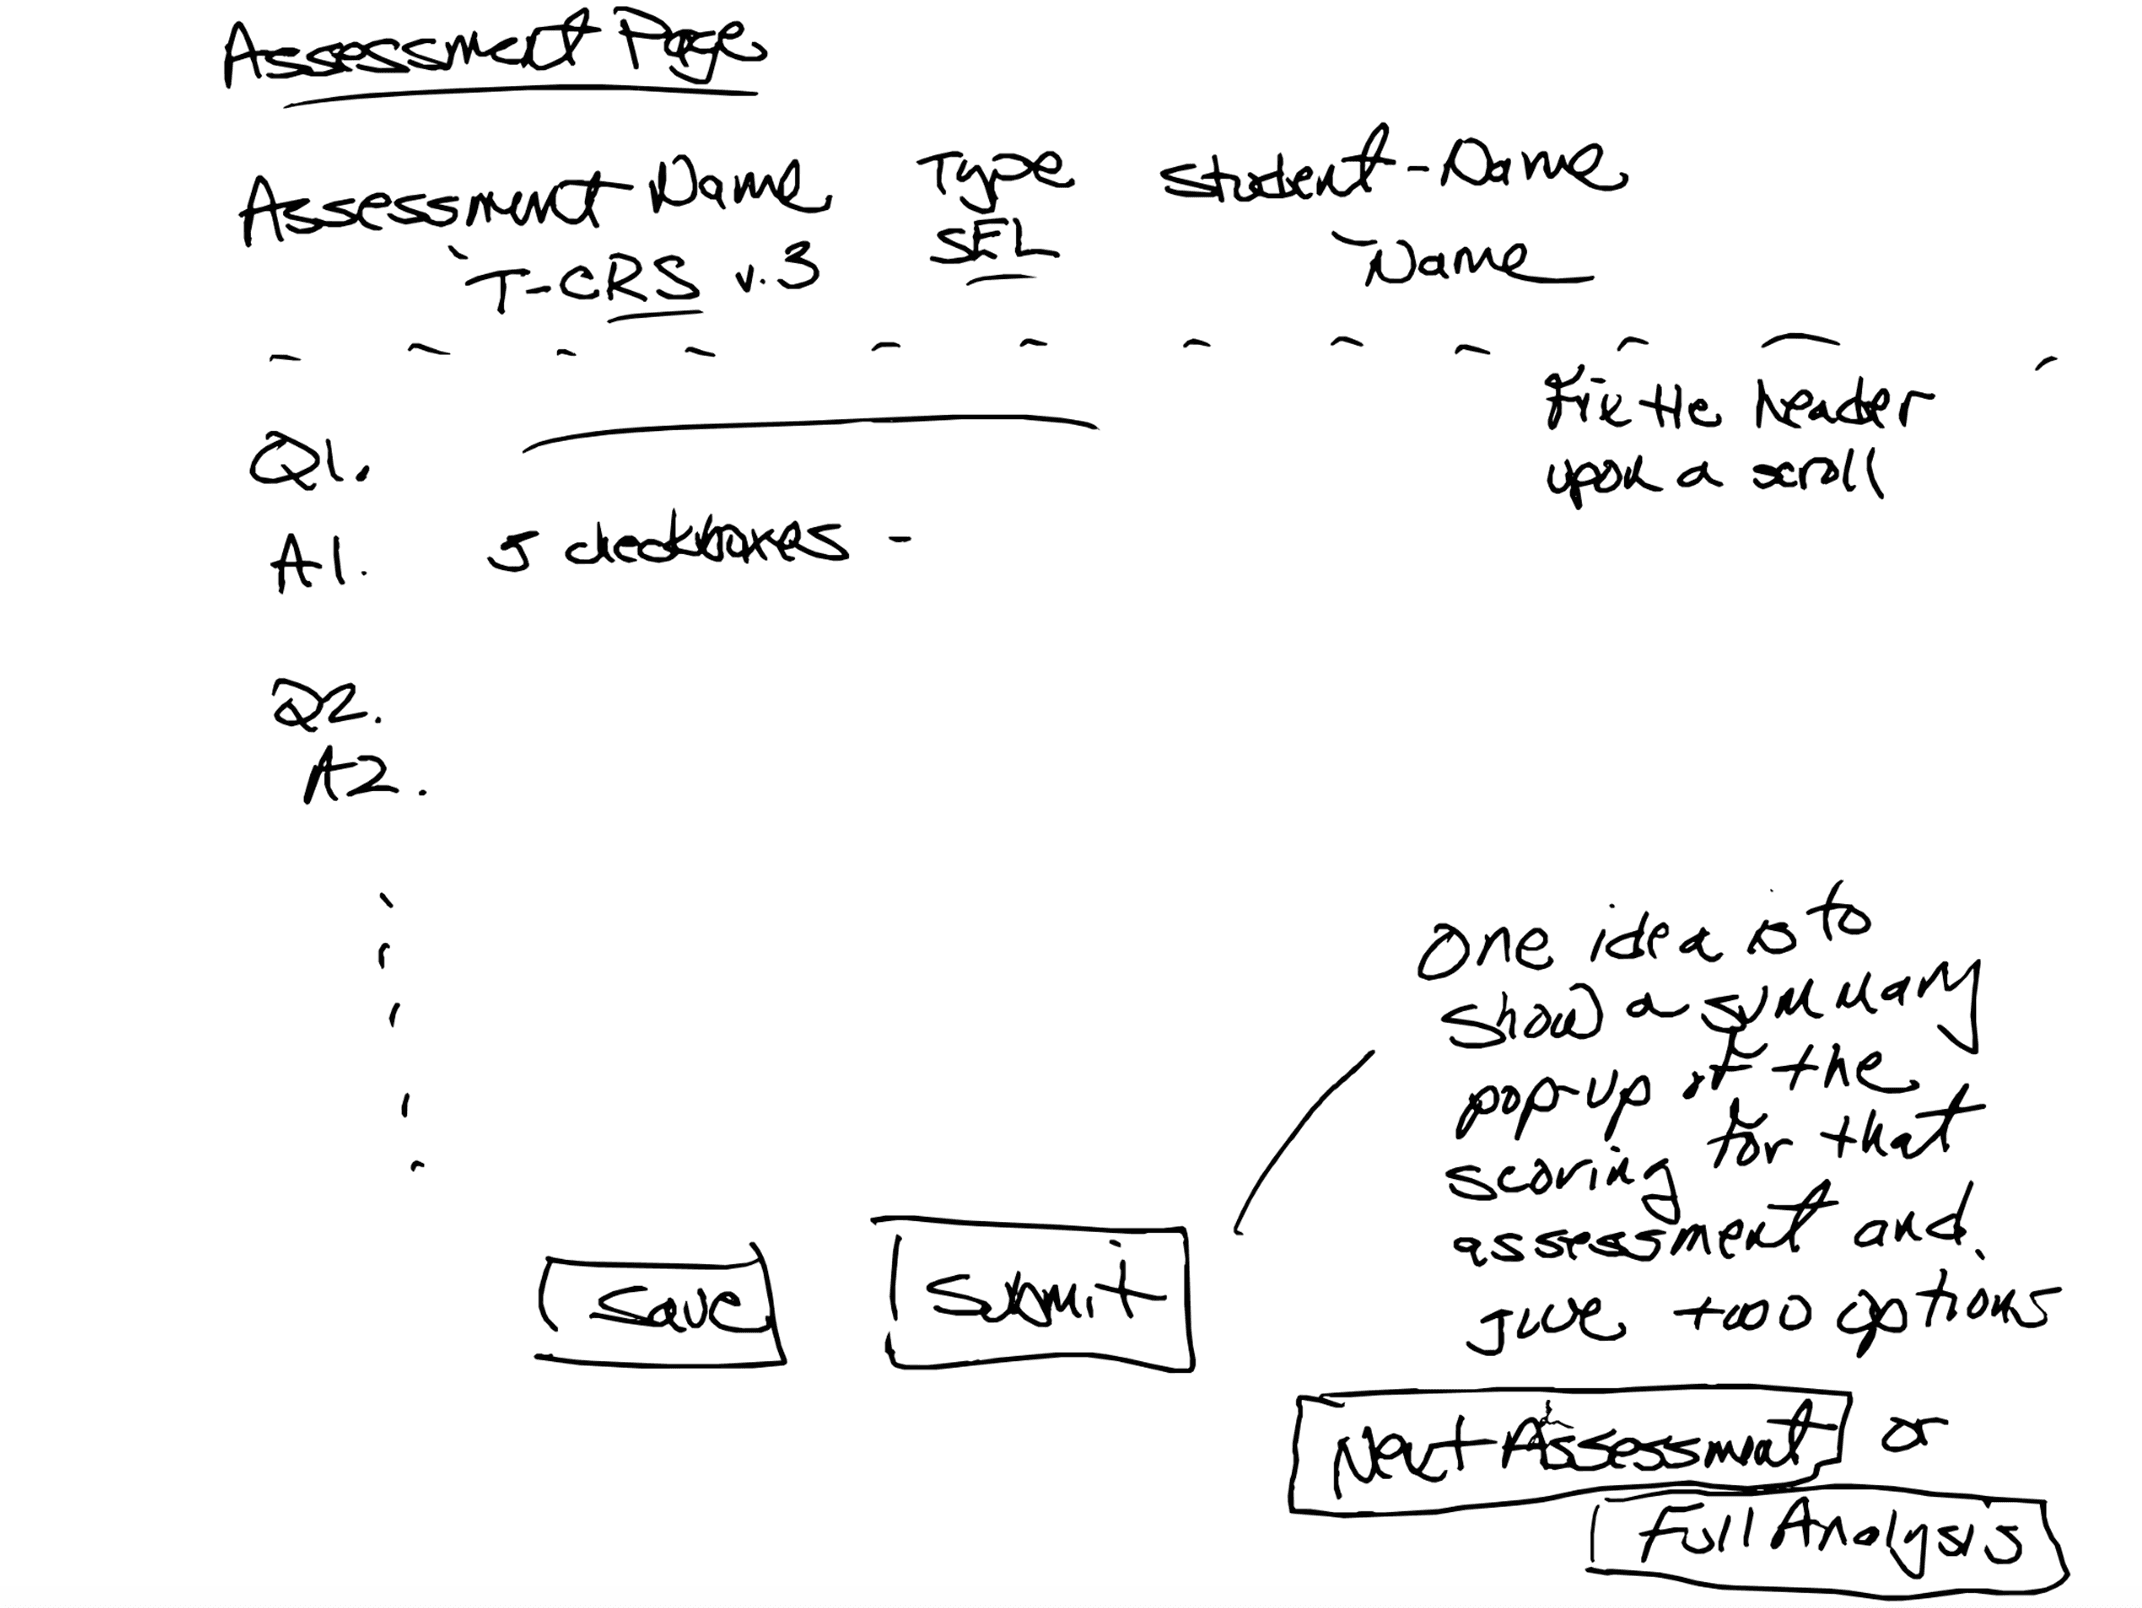 Assessment Page
Assessment Name Type Student - Name
T-CRS v.3 SEL Name
Fix the header
upon a scroll
Q1.
A1. 5 checkboxes -
Q2.
A2.
One idea is to
show a summary
pop-up of the
scoring for that
assessment and
give two options
Save Submit
Next Assessment or
Full Analysis